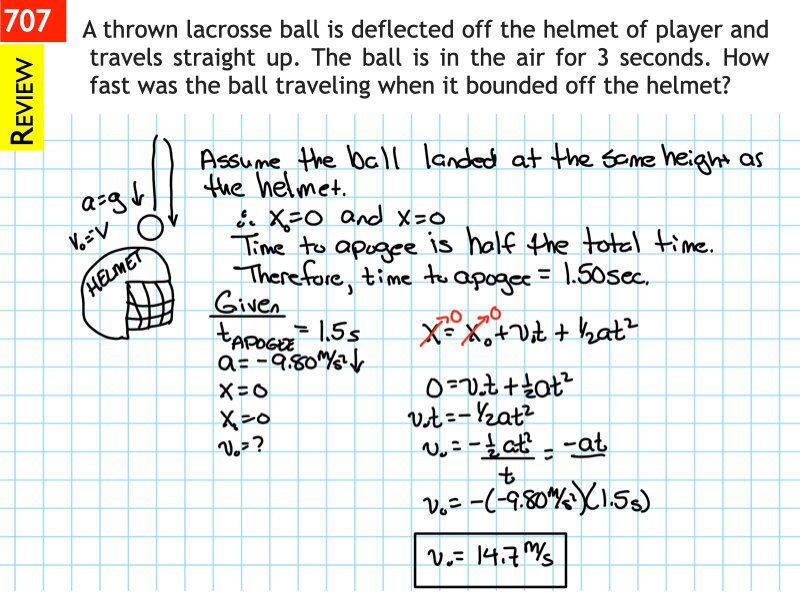 707
REVIEW
A thrown lacrosse ball is deflected off the helmet of player and
travels straight up. The ball is in the air for 3 seconds. How
fast was the ball traveling when it bounded off the helmet?
Assume the ball landed at the same height as
the helmet.
∴ x₀=0 and x=0
Time to apogee is half the total time.
Therefore, time to apogee = 1.50sec.
a=g↓
v₀=v
HELMET
Given
t_APOGEE = 1.5s
a=-9.80 m/s² ↓
x=0
x₀=0
v₀=?
x→0 = x₀→0 + v₀t + 1/2at²
0=v₀t+½at²
v₀t=-1/2at²
v₀ = -½at²/t = -at
v₀=-(-9.80 m/s²)(1.5s)
v₀= 14.7 m/s